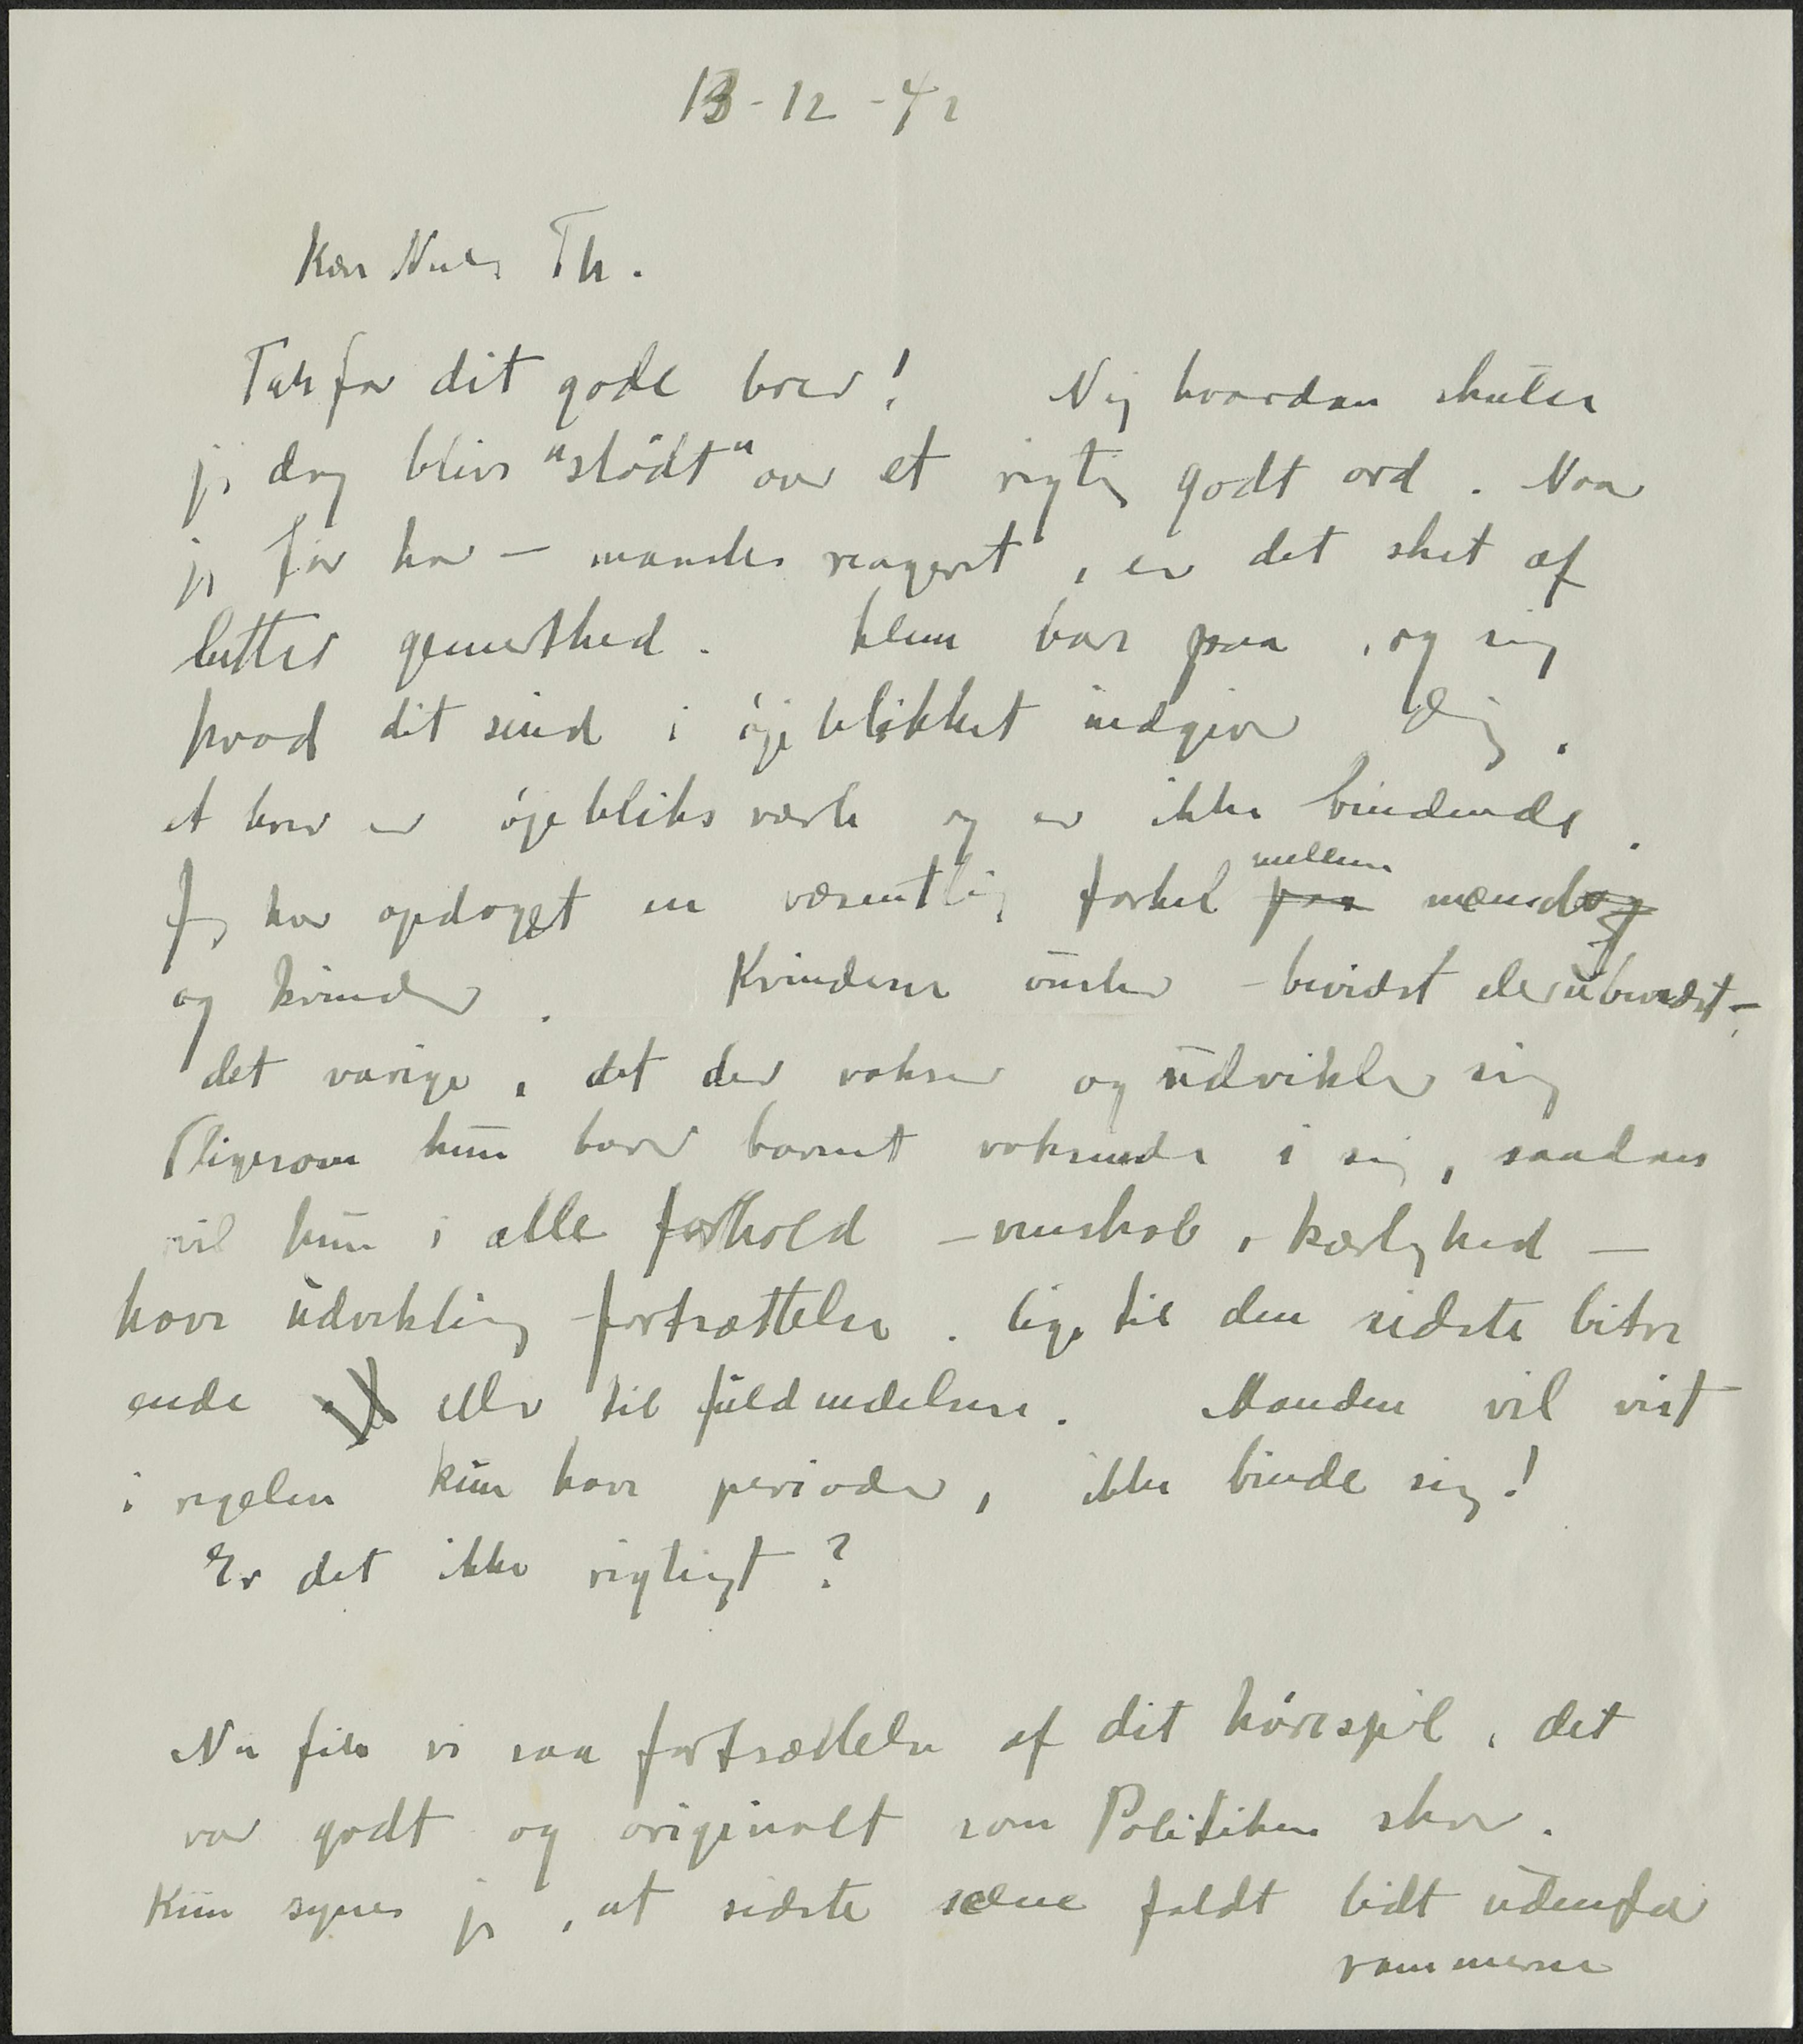 13-12-42
Kære Niels Th.
Tak for dit gode brev! Nej hvordan skulde
jeg dog blive "stödt" over et rigtig godt ord. Naar
jeg för har – maaske reageret, er det sket af
lutter generthed. Klem bare paa, og sig
hvad dit sind i öjeblikket indgiver dig.
et brev er öjebliks værk og er ikke bindende.
Jeg har opdaget en væsentlig forskel mellem mænd
og kvinder. Kvinderne önsker – bevidst eller ubevidst –
det varige, det der vokser og udvikler sig
Ligesom hun bærer barnet voksende i sig, saadan
vil hun i alle forhold – venskab, kærlighed –
have udvikling fortsættelse. lige til den sidste bitre
ende eller til fuldendelsen. Manden vil vist
i regelen kun have perioder, ikke binde sig!
Er det ikke rigtigt?
Nu fik vi saa fortsættelse af dit hörespil, det
var godt og originalt som Politiken skrev.
Kun synes jeg, at sidste scene faldt lidt udenfor
rammerne